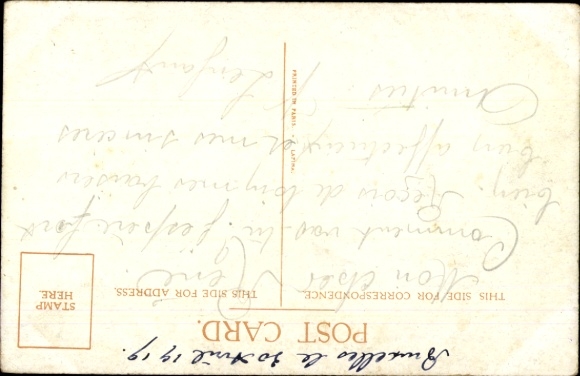 Bruxelles le 30 Avril 1919.
POST CARD.
THIS SIDE FOR CORRESPONDENCE.
THIS SIDE FOR ADDRESS.
STAMP
HERE.
PRINTED IN PARIS.
Mon cher René
Comment vas-tu j'espère fort
bien. Reçois de loin mes baisers
bien affectueux et mes sincères
Amitiés.